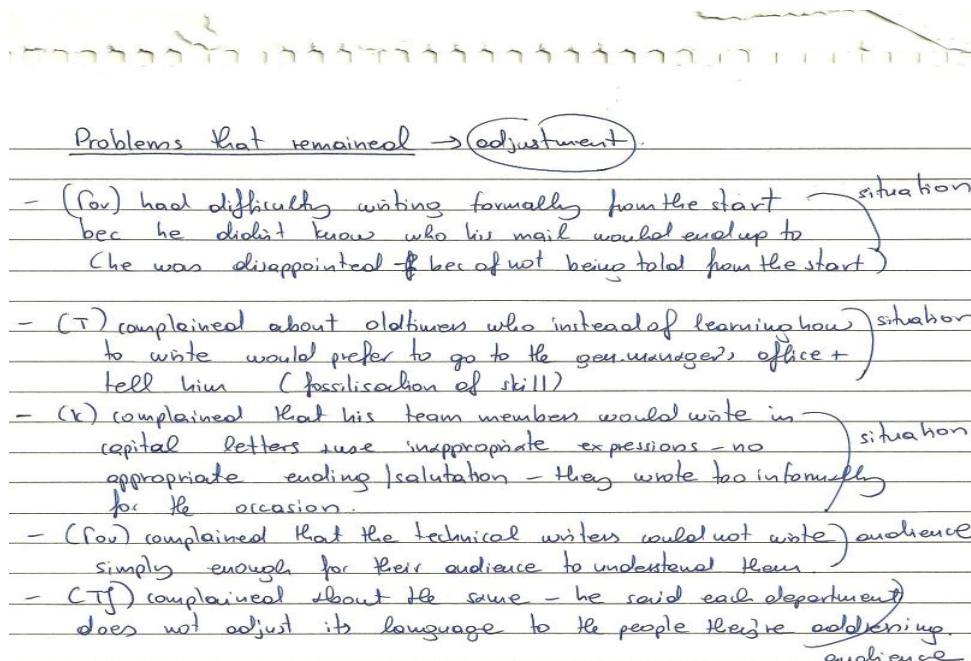 Problems that remained → adjustment.
- (Γου) had difficulty writing formally from the start situation
bec he didn't know who his mail would end up to
(he was disappointed bec of not being told from the start)
- (T) complained about oldtimers who instead of learning how situation
to write would prefer to go to the gen. manager's office +
tell him (fossilisation of skill)
- (K) complained that his team members would write in
capital letters + use inappropriate expressions - no situation
appropriate ending / salutation - they wrote too informally
for the occasion.
- (Γου) complained that the technical writers could not write audience
simply enough for their audience to understand them.
- (TJ) complained about the same - he said each department
does not adjust its language to the people they're addressing.
audience